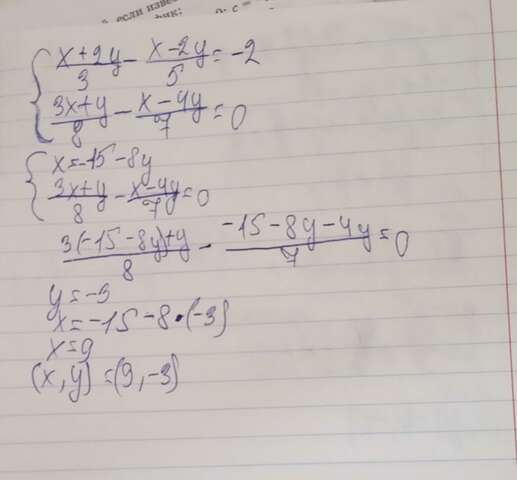 если
{ (x+2y)/3 - (x-2y)/5 = -2
(3x+y)/8 - (x-4y)/7 = 0
{ x=-15-8y
(3x+y)/8 - (x-4y)/7 = 0
(3(-15-8y)+y)/8 - (-15-8y-4y)/7 = 0
y=-3
x=-15-8•(-3)
x=9
(x,y)=(9,-3)